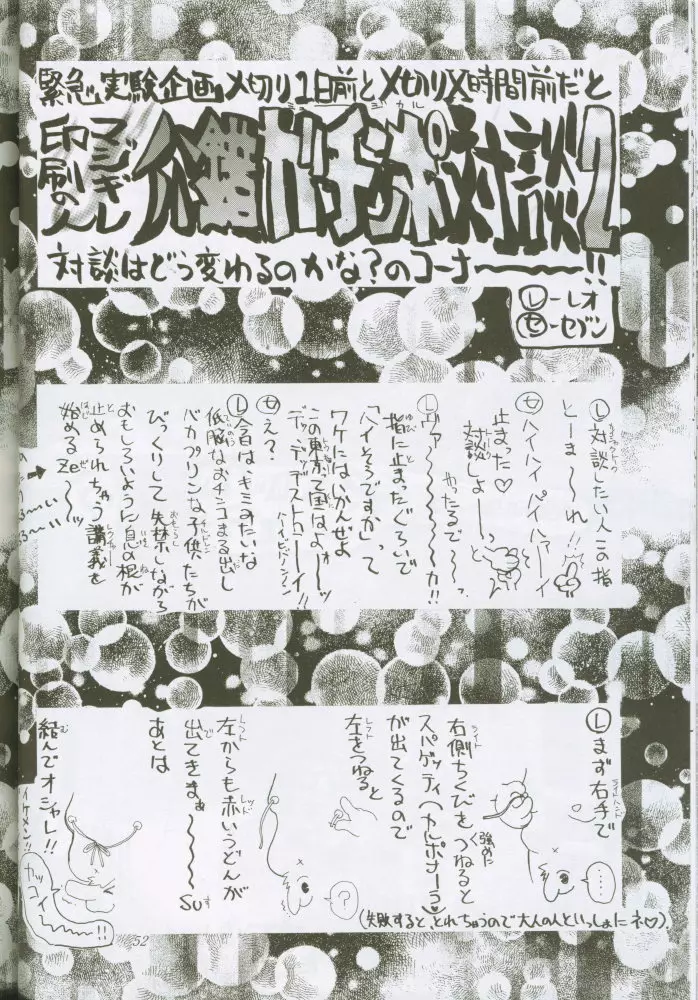 緊急実験企画〆切り1日前と〆切りX時間前だと
印刷の人
マジギレ
対談2
対談はどう変わるのかな?のコーナー〜〜〜!!
Ⓛーレオ
㋝ーセブン
Ⓛ対談したい人この指
とーま〜〜れ!!
㋝ハイハイパイハァーイ
止まった♡
対談しよーー
Ⓛヴァ〜〜〜〜〜カ!!
やったるで〜〜っ
指に止まったぐらいで
「ハイそうですか」って
ワケにはいかんぜよ
この東京って国はよぉ〜〜ッ
デッ・デッデストローーイ!!
㋝え?
Ⓛ今日はキミみたいな
低脳なおチンコまる出し
バカプリンな子供たちが
びっくりして失禁しながら
おもしろいように息の根が
止められちゃう講義を
始めるZe〜〜〜ッ
Ⓛまず右手で
右側ちくびを強めにつねると
スパゲッティ(カルボナーラ)
が出てくるので
左をつねると
左からも赤いうどんが
出てきまぁ〜〜〜〜SU
あとは
結んでオシャレ!!
イケメン!!
……
?
カッコイ〜〜〜!!
(失敗すると、とれちゃうので大人の人といっしょにネ♡)
52